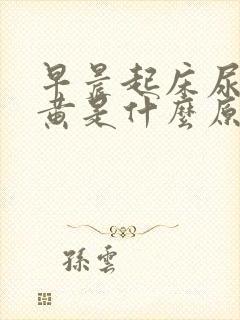 早晨起床尿
黄是什麼原
孫雲